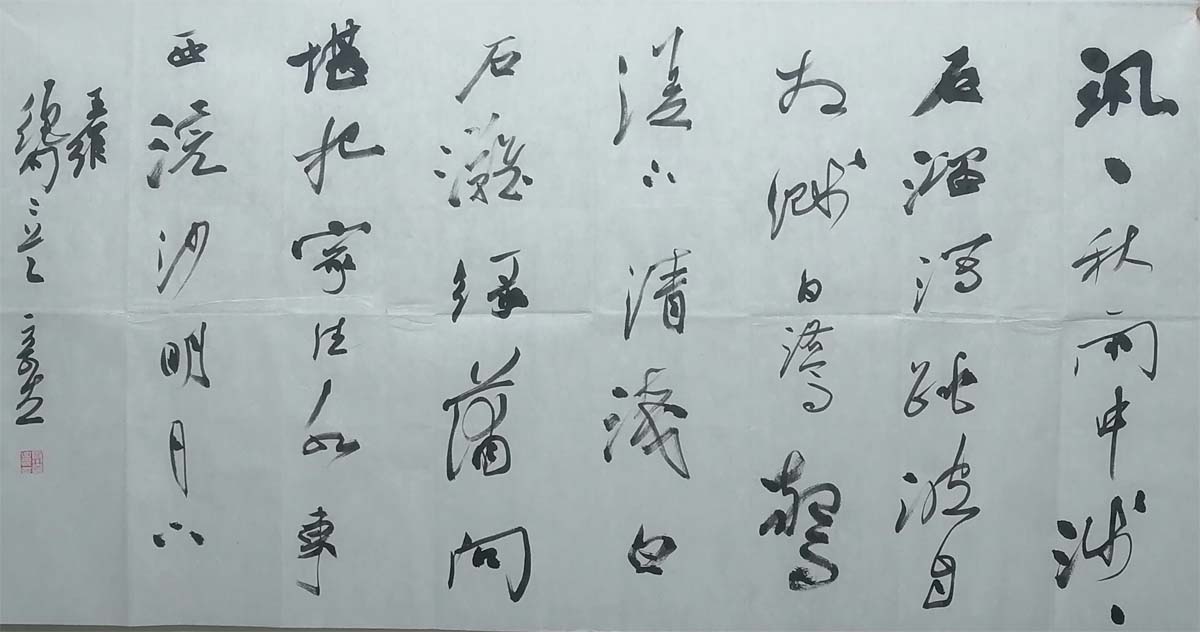 飒丶秋雨中浅丶
石溜泻跳波自
相溅白鹭驚
復下清浅白
石灘绿蒲向
堪把家住水東
西浣沙明月下
王维